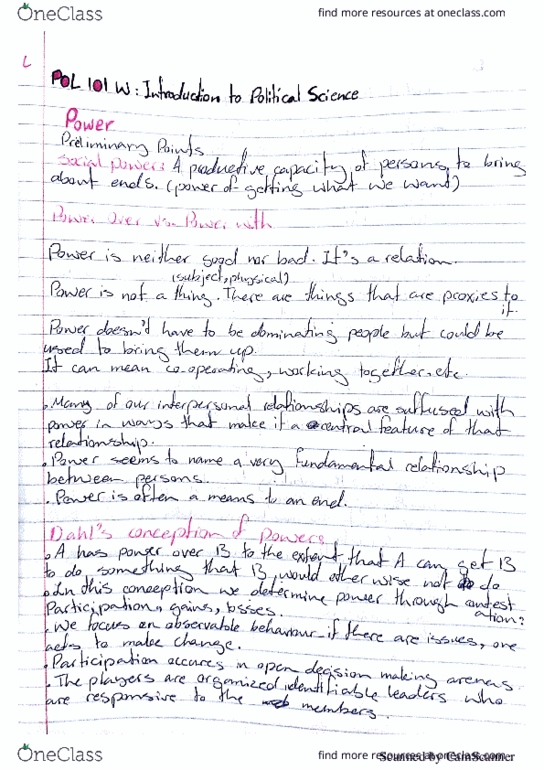 OneClass
find more resources at oneclass.com
L
POL 101 W: Introduction to Political Science
Power
Preliminary Points
Social power: A productive capacity of persons, to bring
about ends. (power of getting what we want)
Power Over vs. Power with
Power is neither good nor bad. It's a relation.
(subject, physical)
Power is not a thing. There are things that are proxies to
it.
Power doesn't have to be dominating people but could be
used to bring them up.
It can mean co-operating, working together, etc.
. Many of our interpersonal relationships are suffused with
power in ways that make it a central feature of that
relationship.
. Power seems to name a very fundamental relationship
between persons.
. Power is often a means to an end.
Dahl's conception of Power:
. A has power over B to the extent that A can get B
to do something that B would otherwise not do
. In this conception we determine power through contest
ation?
Participation, gains, losses.
. We focus on observable behaviour if there are issues, one
acts to make change.
. Participation occures in open decision making arenas.
. The players are organized identifiable leaders who
are responsive to the members.
OneClass
find more resources at oneclass.com
Scanned by CamScanner